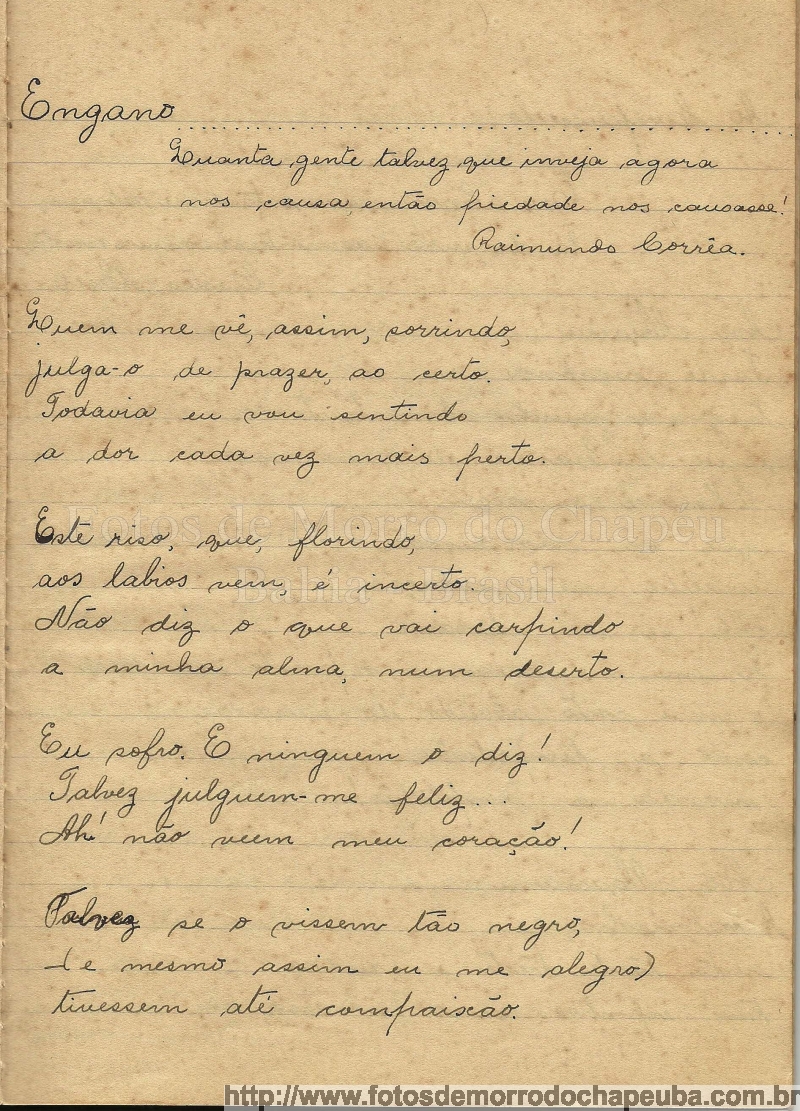 Engano
Quanta gente talvez que inveja agora
nos causa, então piedade nos causasse!
Raimundo Corrêa.
Quem me vê, assim, sorrindo,
julga-o de prazer, ao certo.
Todavia eu vou sentindo
a dor cada vez mais perto.
Este riso, que, florindo,
Fotos de Morro do Chapéu
aos labios vem, é incerto.
Bahia - Brasil
Não diz o que vai carpindo
a minha alma, num deserto.
Eu sofro. E ninguem o diz!
Talvez julguem-me feliz...
Ah! não veem meu coração!
Talvez se o vissem tão negro,
(e mesmo assim eu me alegro)
tivessem até compaixão.
http://www.fotosdemorrodochapeuba.com.br